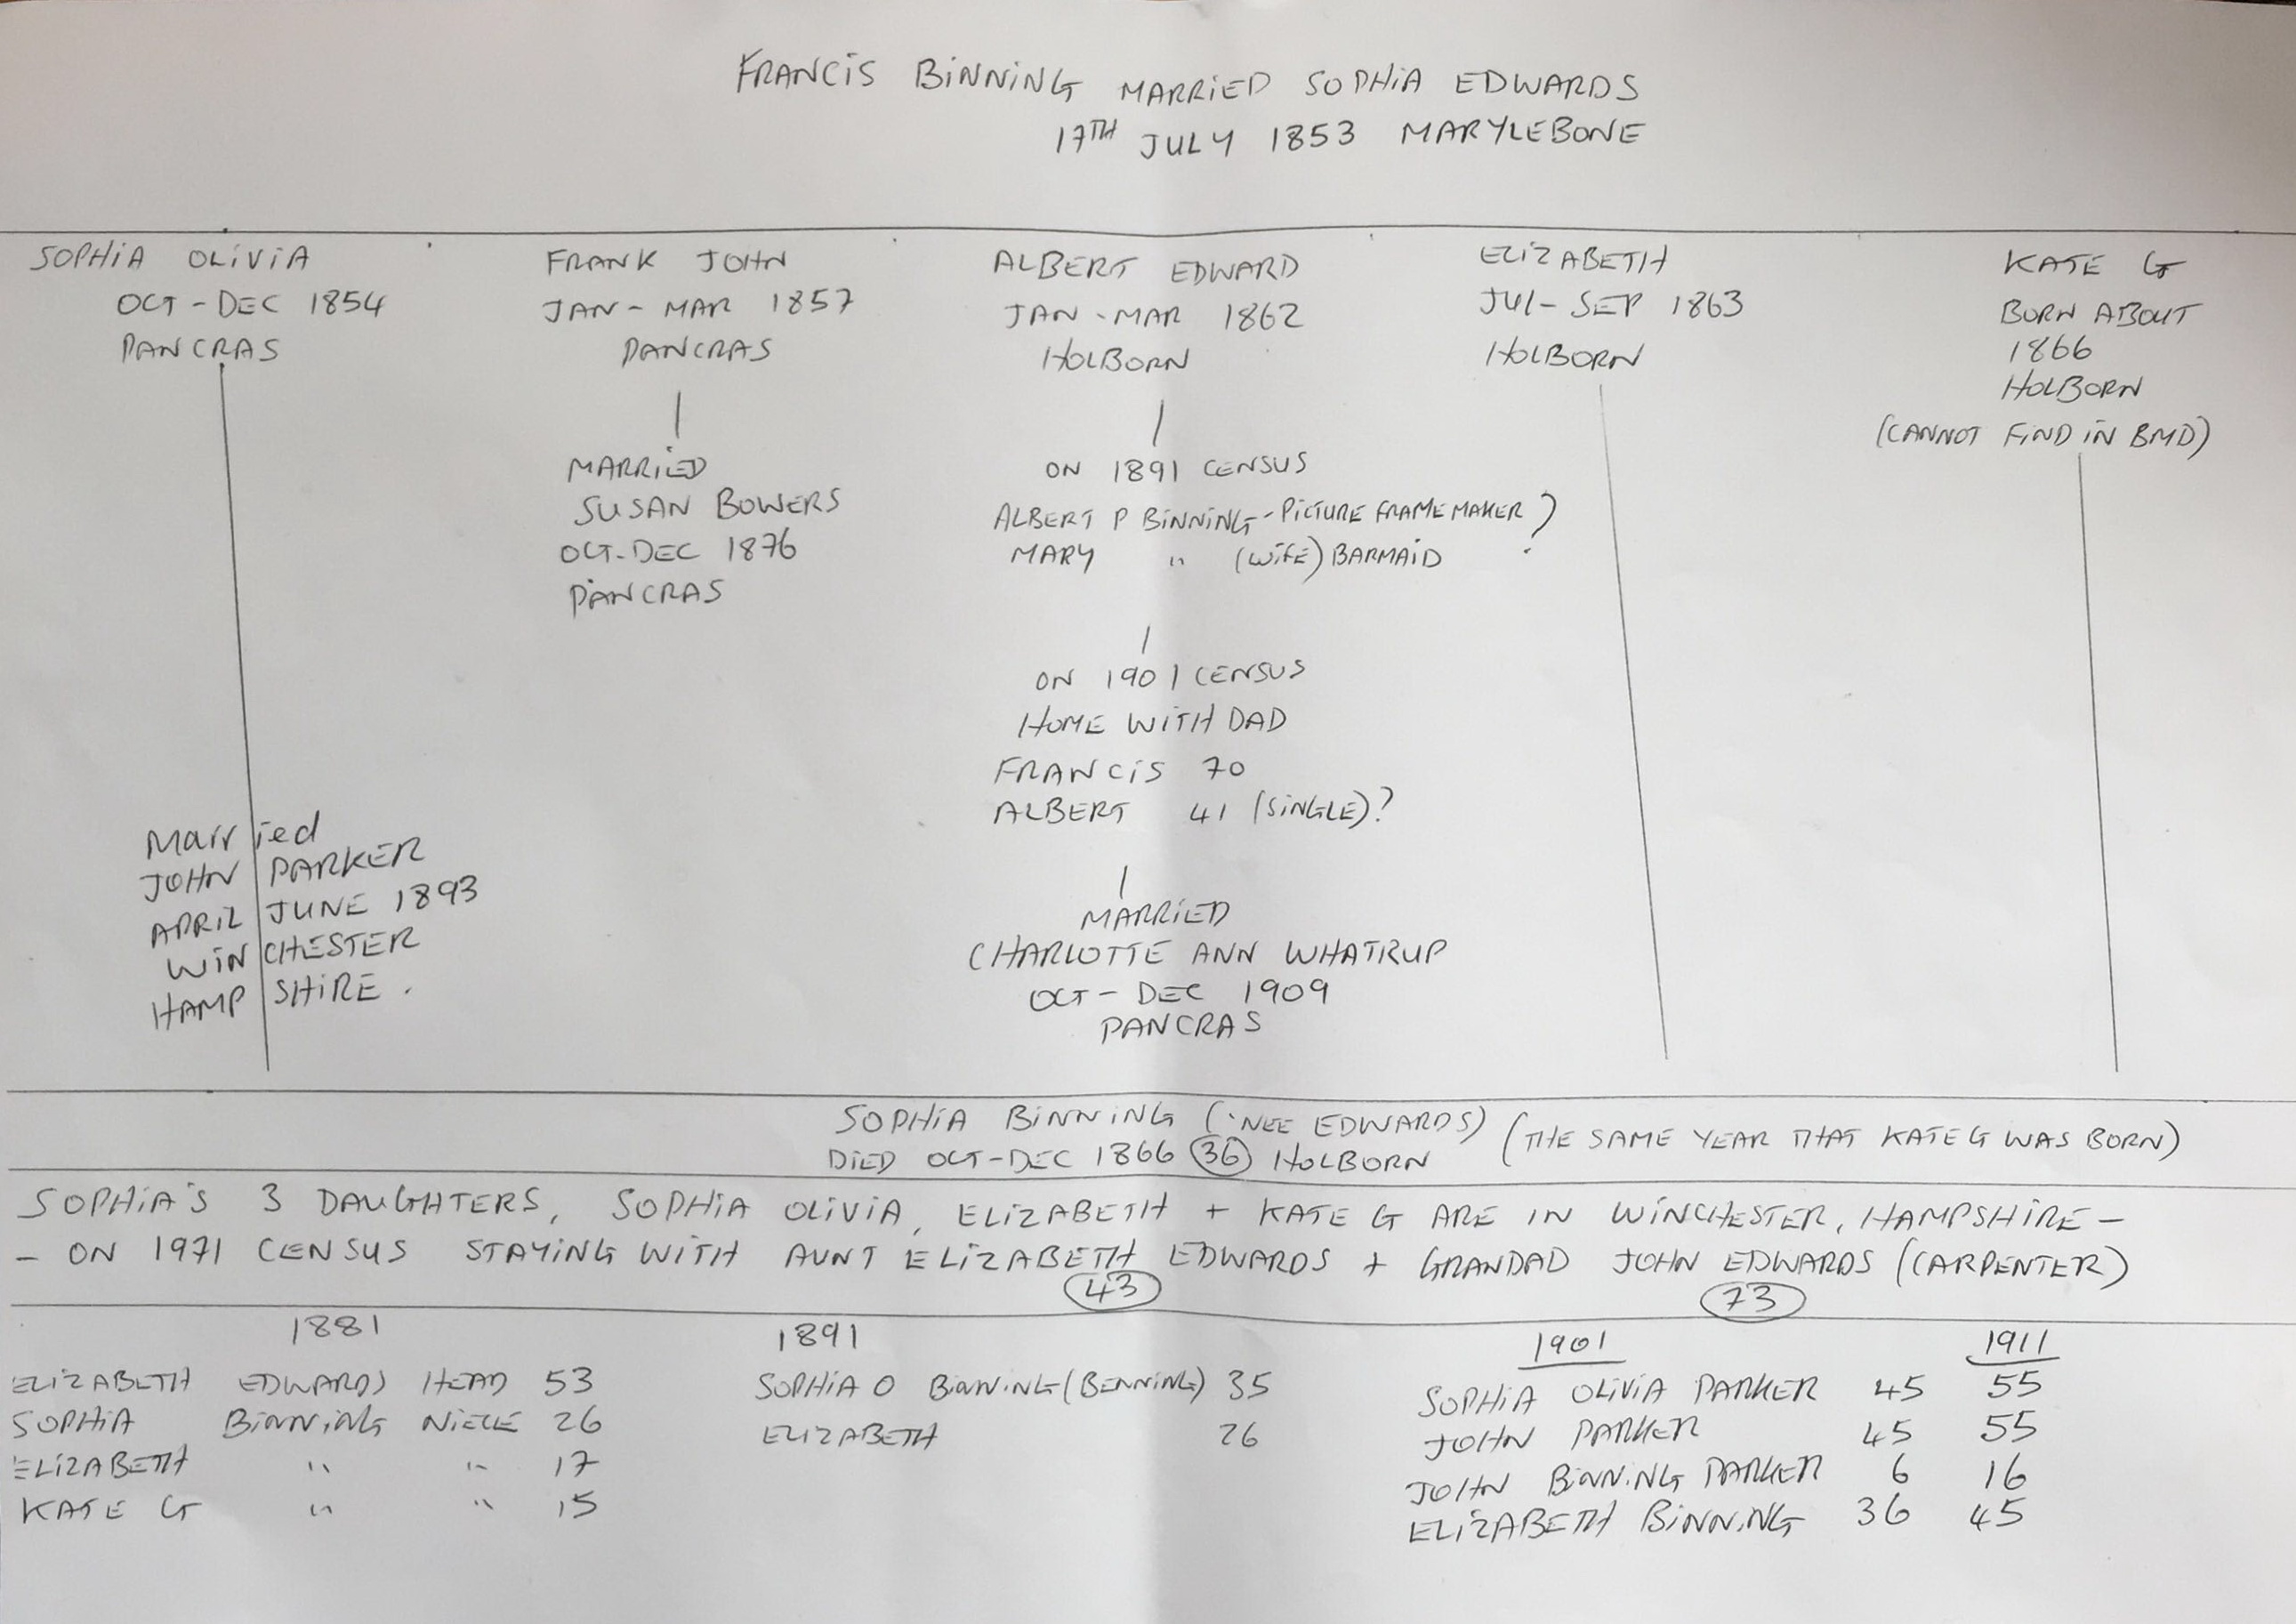 FRANCIS BINNING MARRIED SOPHIA EDWARDS
17TH JULY 1853 MARYLEBONE
SOPHIA OLIVIA
OCT - DEC 1854
PANCRAS
Married
JOHN PARKER
APRIL JUNE 1893
WINCHESTER
HAMPSHIRE.
FRANK JOHN
JAN - MAR 1857
PANCRAS
MARRIED
SUSAN BOWERS
OCT-DEC 1876
PANCRAS
ALBERT EDWARD
JAN - MAR 1862
HOLBORN
ON 1891 CENSUS
ALBERT P BINNING - PICTURE FRAME MAKER ?
MARY " (WIFE) BARMAID
ON 1901 CENSUS
HOME WITH DAD
FRANCIS 70
ALBERT 41 (SINGLE)?
MARRIED
CHARLOTTE ANN WHATRUP
OCT - DEC 1909
PANCRAS
ELIZABETH
JUL - SEP 1863
HOLBORN
KATE G
BORN ABOUT
1866
HOLBORN
(CANNOT FIND IN BMD)
SOPHIA BINNING (NEE EDWARDS) (THE SAME YEAR THAT KATE G WAS BORN)
DIED OCT-DEC 1866 36 HOLBORN
SOPHIA'S 3 DAUGHTERS, SOPHIA OLIVIA, ELIZABETH + KATE G ARE IN WINCHESTER, HAMPSHIRE -
- ON 1971 CENSUS STAYING WITH AUNT ELIZABETH EDWARDS + GRANDAD JOHN EDWARDS (CARPENTER)
43 73
1881
ELIZABETH EDWARDS HEAD 53
SOPHIA BINNING NIECE 26
ELIZABETH " " 17
KATE G " " 15
1891
SOPHIA O BINNING (BENNING) 35
ELIZABETH 26
1901 1911
SOPHIA OLIVIA PARKER 45 55
JOHN PARKER 45 55
JOHN BINNING PARKER 6 16
ELIZABETH BINNING 36 45